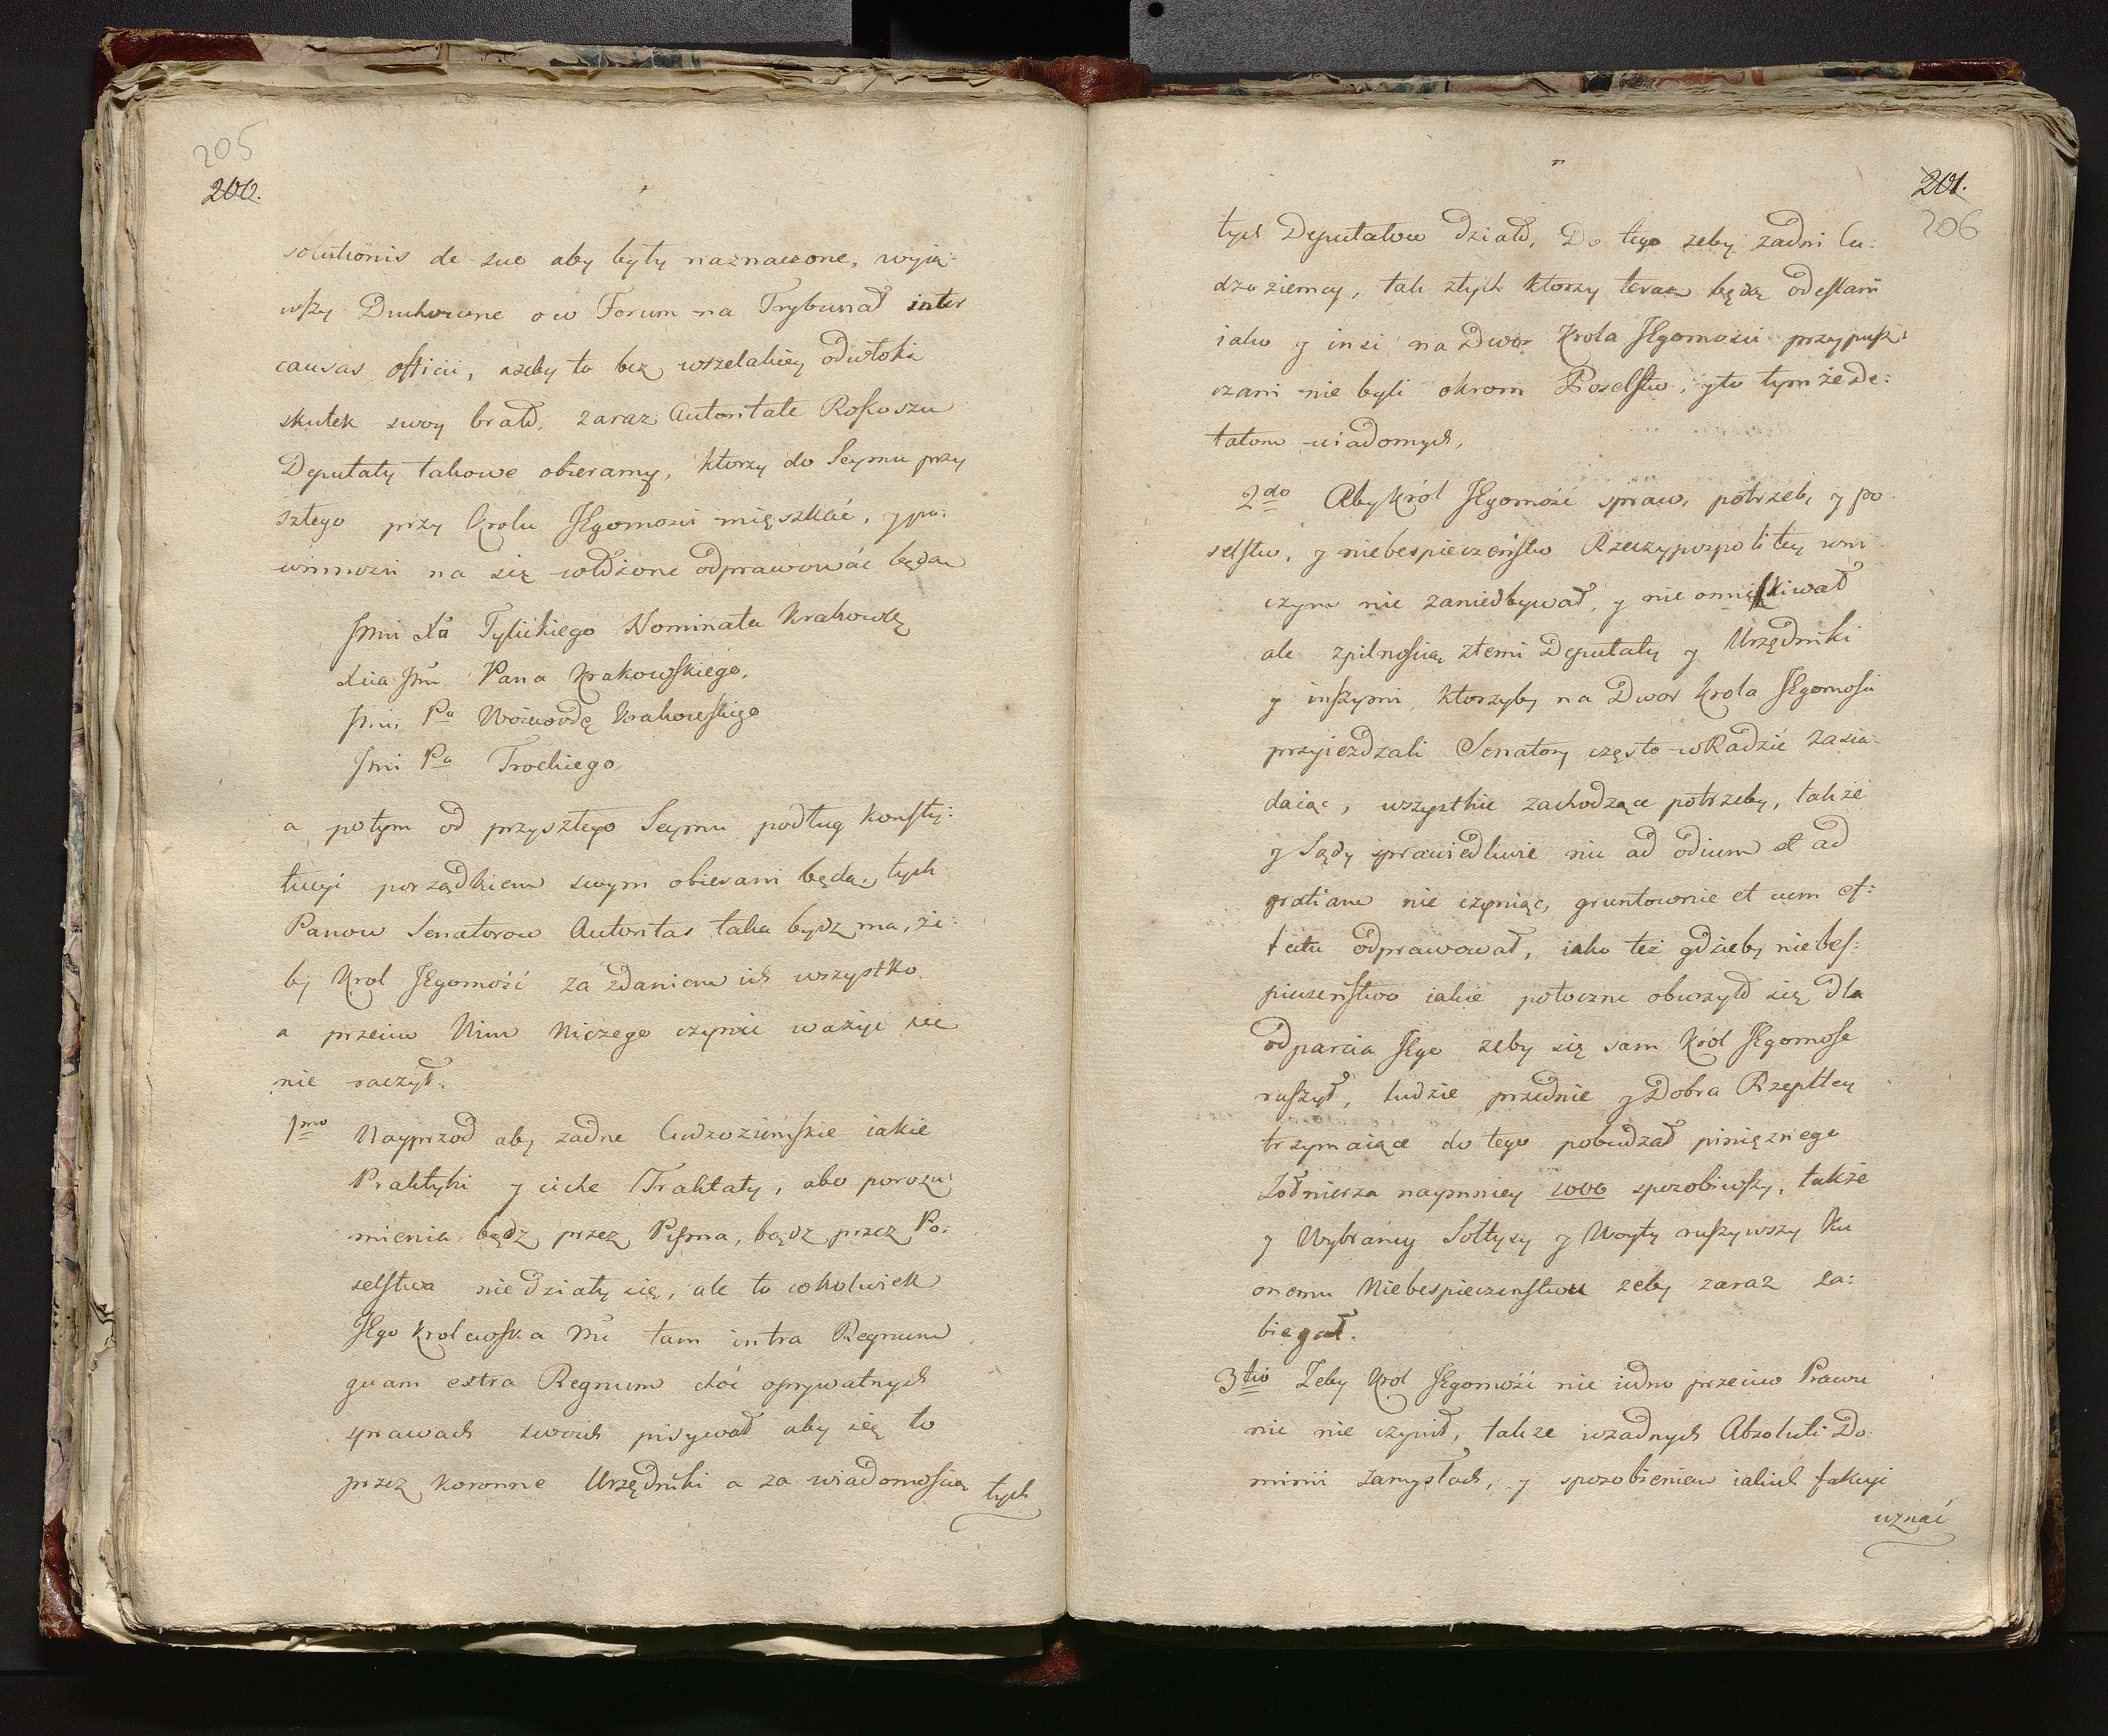 205
200.
solutionis de suo aby były naznaczone, wyją-
wszy Duchowne o co Forum na Trybunał inter
causas officii, ażeby to bez wszelakiey odwłoki
skutek swoy brało, zaraz Autoritate Rokoszu
Deputaty takowe obieramy, ktorzy do Seymu przy
szłego przy Krolu JEgomosci mięszkać, y po:
winnosci na się włożone odprawować będą
Jmci Xa Tylickiego Nominata Krakowsk
Xcia Jmci Pana Krakowskiego,
Jmci Pa Woiewodę Krakowskiego
Jmci Pa Trockiego
a potym od przyszłego Seymu podług Konsty:
tucyi porządkiem swym obierani będą, tych
Panow Senatorow Autoritas taka bydz ma, że
by Krol JEgomość za zdaniem ich wszystko
a przeciw Nim Niczego czynić ważyć się
nie raczył.
1mo Nayprzod aby żadne Cudzoziemskie iakie
Praktyki y ciche Traktaty, abo porozu:
mienia bądz przez Pisma, bądz przez Po:
selstwa nie działy się, ale to cokolwiek
JEgo Krolewska Mć tam intra Regnum
quam extra Regnum choć oprywatnych
sprawach swoich pisywał aby się to
przez koronne Urzędniki a za wiadomością
tych
201.
206
tych Deputatow działo, Do tego zeby zadni Cu:
dzoziemcy, tak ztych ktorzy teraz będą odesłani
iako y insi na Dwor Krola JEgomosci przypusz:
czani nie byli okrom Poselstw, y to tym że De:
tatom wiadomych,
2do Aby Król JEgomość spraw, potrzeb, y po
selstw, y niebespieczeństw Rzeczypospolitey wni
czym nie zaniedbywał, y nie omięszkiwał
ale zpilnością ztemi Deputaty y Urzędniki
y inszymi ktorzyby na Dwor Krola JEgomosci
przyiezdzali Senatory często w Radzie Zasia-
daiąc, wszystkie zachodzące potrzeby, także
y Sądy sprawiedliwie nic ad odium et ad
gratiam nie czyniąc, gruntownie et cum ef:
fectu odprawował, iako też gdzieby niebes:
pieczeństwo iakie potoczne oburzyło się dla
odparcia JEgo zeby się sam Król JEgomosc
ruszył, ludzie przednie y Dobra Rzepltey
trzymaiące do tego pobudzał pinięznego
Zołnierza naymniey 1000 sposobiwszy, także
y Wybrańcy Sołtysy y Woyty ruszywszy Ku
onemu Niebespieczenstwu zeby zaraz za:
biegał.
3tio Zeby Krol JEgomość nie iedno przeciw Prawu
nic nie czynił, takze wzadnych Absoluti Do:
minii zamysłach, y sposobieniu iakich fakcyi
uznać